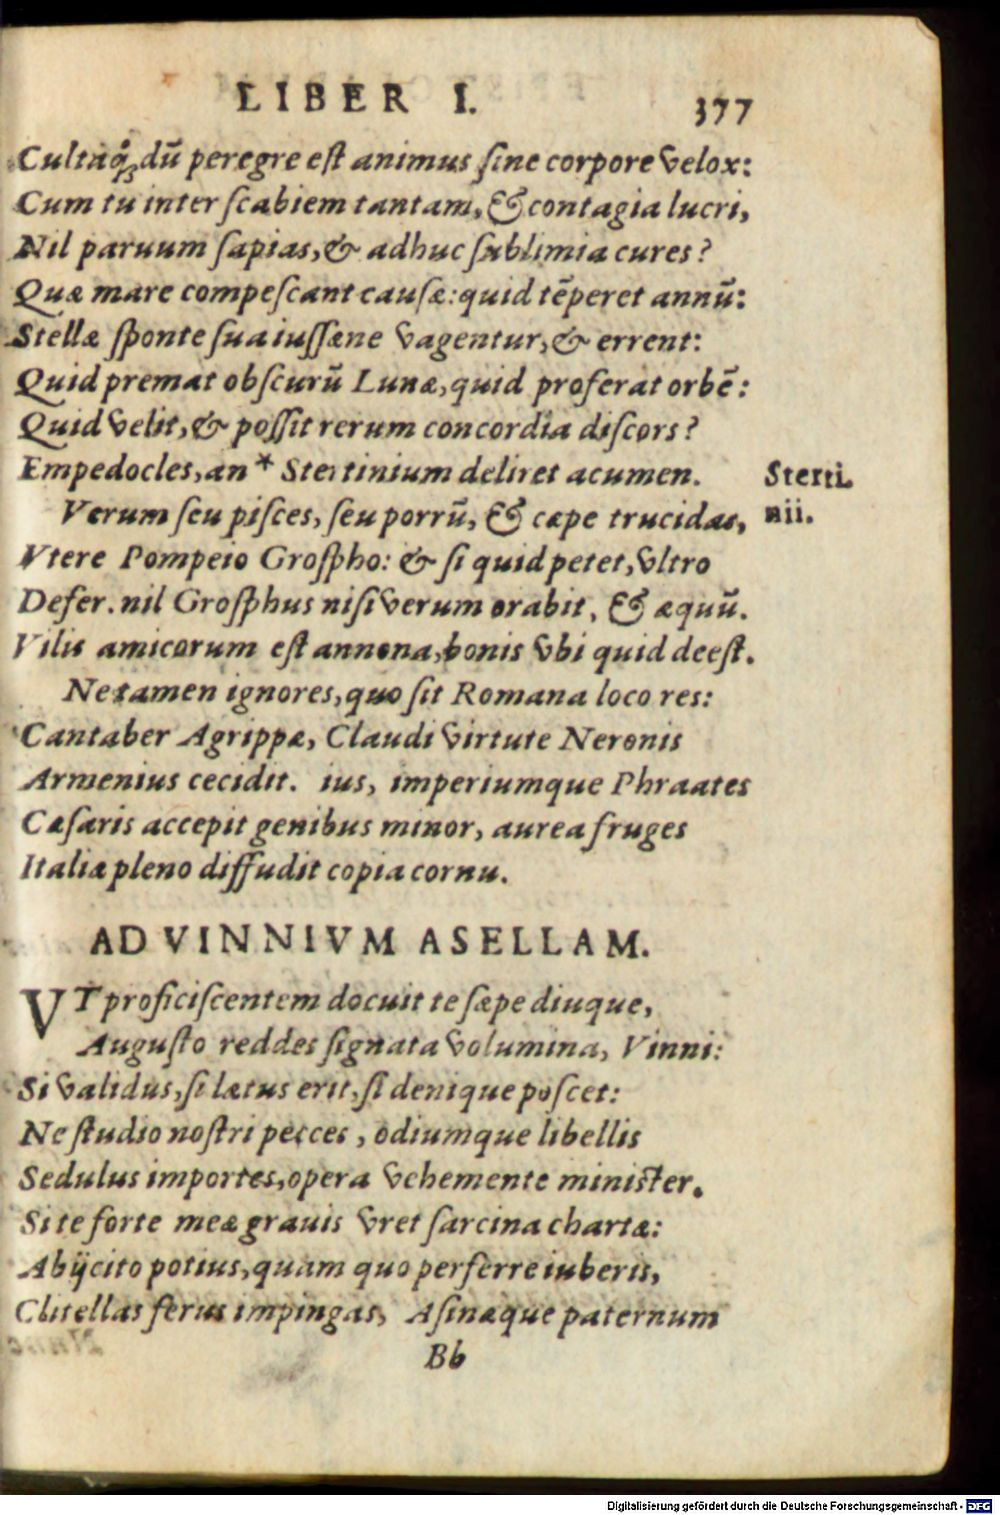 LIBER I. 377
Cultaq́ꝫ dū peregre est animus sine corpore velox:
Cum tu inter scabiem tantam, & contagia lucri,
Nil paruum sapias, & adhuc sublimia cures?
Quæ mare compescant causæ: quid tēperet annū:
Stellæ sponte sua iussæne vagentur, & errent:
Quid premat obscurū Lunæ, quid proferat orbē:
Quid velit, & possit rerum concordia discors?
Empedocles, an * Stertinium deliret acumen.
Sterti
nii.
Verum seu pisces, seu porrū, & cæpe trucidas,
Vtere Pompeio Grospho: & si quid petet, vltro
Defer. nil Grosphus nisi verum orabit, & æquū.
Vilis amicorum est annona, bonis vbi quid deest.
Ne tamen ignores, quo sit Romana loco res:
Cantaber Agrippæ, Claudi virtute Neronis
Armenius cecidit. ius, imperiumque Phraates
Cæsaris accepit genibus minor, aurea fruges
Italiæ pleno diffudit copia cornu.
AD VINNIVM ASELLAM.
VT proficiscentem docuit te sæpe diuque,
Augusto reddes signata volumina, Vinni:
Si validus, si lætus erit, si denique poscet:
Ne studio nostri pecces, odiumque libellis
Sedulus importes, opera vehemente minister.
Si te forte meæ grauis vret sarcina chartæ:
Abijcito potius, quam quo perferre iuberis,
Clitellas ferus impingas, Asinæque paternum
Bb
Digitalisierung gefördert durch die Deutsche Forschungsgemeinschaft - DFG